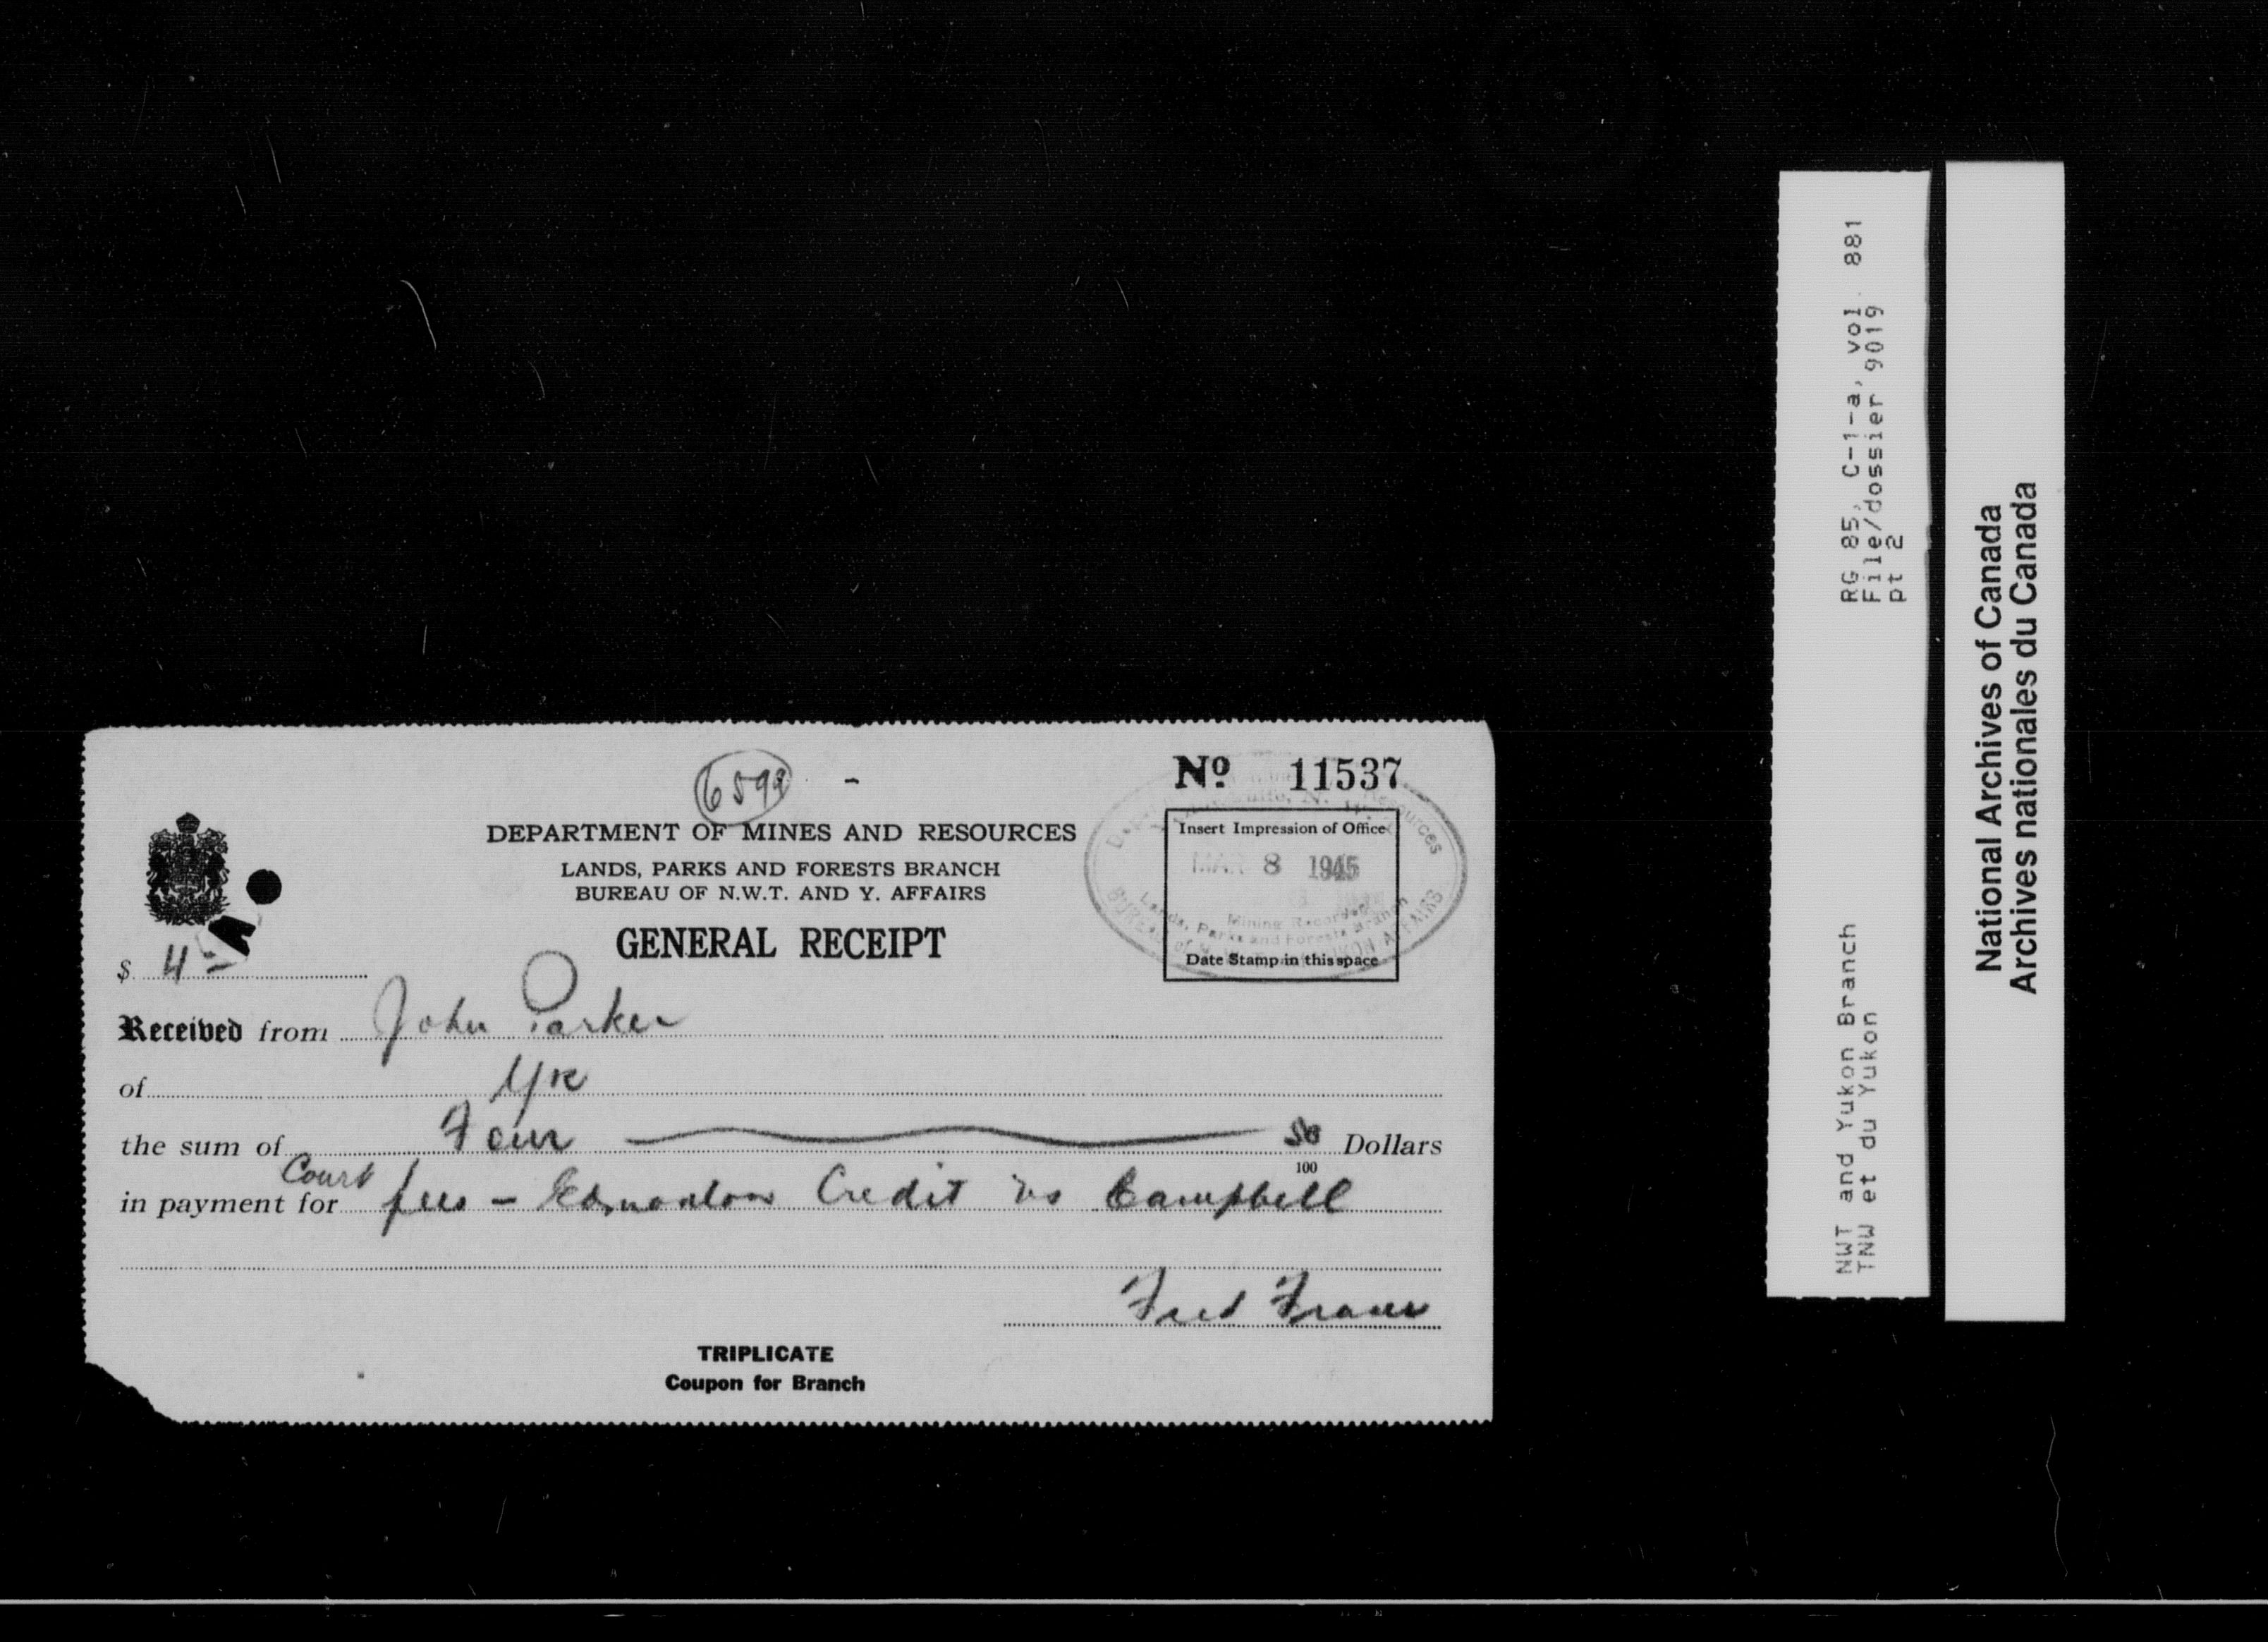 6599
Nº 11537
DEPARTMENT OF MINES AND RESOURCES
LANDS, PARKS AND FORESTS BRANCH
BUREAU OF N.W.T. AND Y. AFFAIRS
GENERAL RECEIPT
Insert Impression of Office
MAR 8 1945
Mining Recorder
Lands, Parks and Forests Branch
Date Stamp in this space
$ 4
Received from John Parker
of YK
the sum of Four 50/100 Dollars
Court
in payment for fees - Edmonton Credit vs Campbell
Fred
TRIPLICATE
Coupon for Branch
RG 85, C-1-a, vol. 881
File/dossier 9019
pt 2
NWT and Yukon Branch
TNW et du Yukon
National Archives of Canada
Archives nationales du Canada